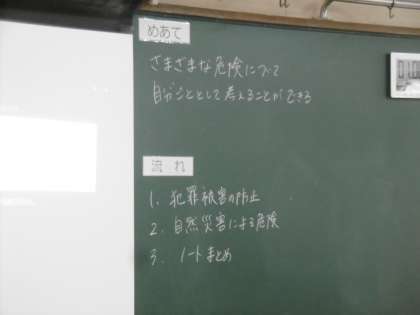 めあて
さまざまな危険について
自分ごととして考えることができる
流れ
1. 犯罪被害の防止
2. 自然災害による危険
3. ノートまとめ